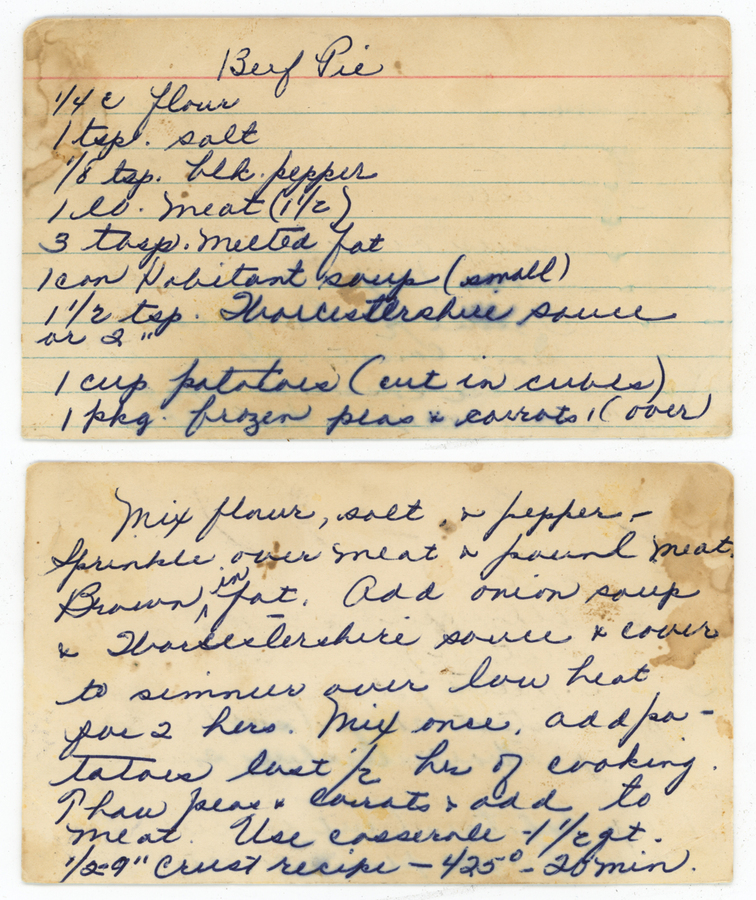 Beef Pie
1/4 c flour
1 tsp. salt
1/8 tsp. blk. pepper
1 lb. meat (1 1/2)
3 tbsp. melted fat
1 can Habitant soup (small)
1 1/2 tsp. Worcestershire sauce
or 2 "
1 cup potatoes (cut in cubes)
1 pkg. frozen peas & carrots, (over)
Mix flour, salt, & pepper -
Sprinkle over meat & pound meat.
Brown in fat. Add onion soup
& Worcestershire sauce & cover
to simmer over low heat
for 2 hrs. Mix once, add po-
tatoes last 1/2 hr of cooking.
Thaw peas & carrots & add to
meat. Use casserole - 1 1/2 qt.
1/2-9" Crust recipe - 425° - 20 min.